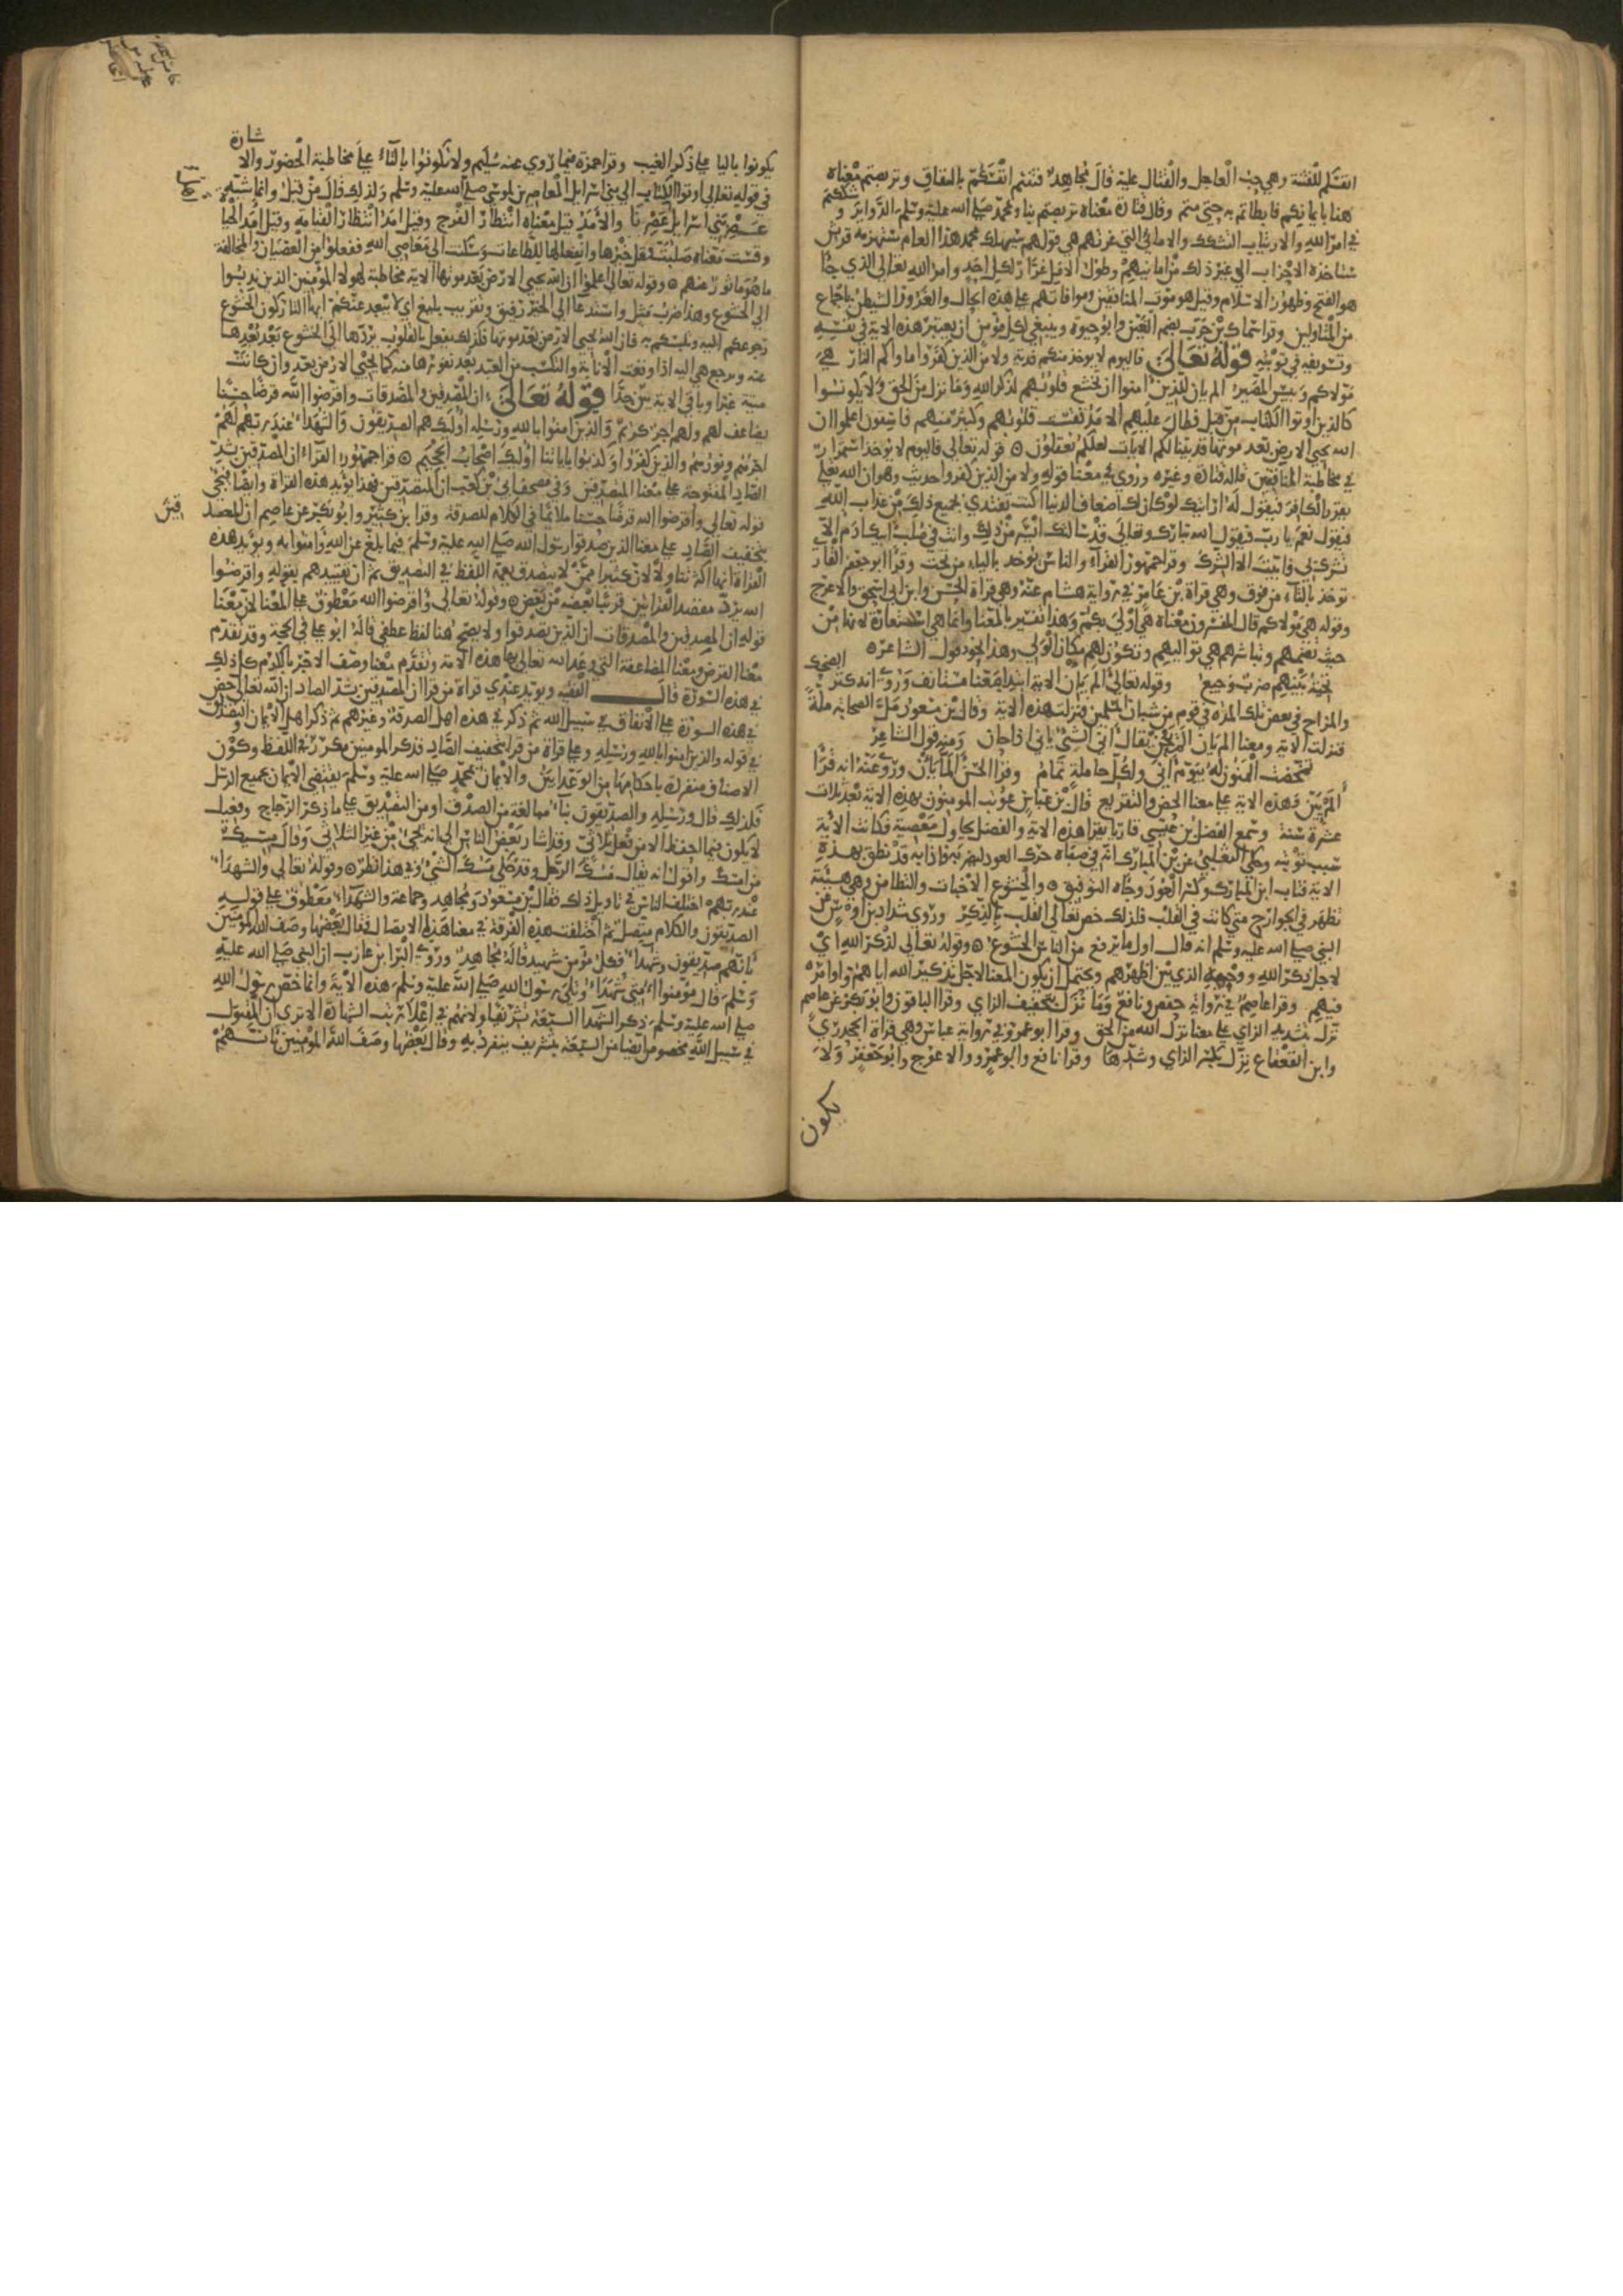 انفسكم للفتنة وهي حب العاجل والقتال عليه قال مجاهد فتنتم انفسكم بالنفاق وتربصتم معناه
هنا بايمانكم فابطاتم به حتى متم وقال قتادة معناه تربصتم بنا وبمحمد صلى الله عليه وسلم الدواير و شككتم
في امر الله والارتياب التشكك والاماني التي غرتهم هي قولهم سيهلك محمد هذا العام ستهزمه قريش
ستاخذه الاحزاب الى غير ذلك من امانيهم وطول الامل غرار لكل احد وامر الله تعالى الذي جا
هو الفتح وظهور الاسلام وقيل هو موت المنافقين وموافاتهم على هذه الحال والغرور الشيطن باجماع
من المتاولين وقرا سماك بن حرب بضم الغين وابو حيوة وينبغي لكل مومن ان يعتبر هذه الاية في نفسه
وتسويفه في توبته قوله تعالى فاليوم لا يوخذ منكم فدية ولا من الذين كفروا ماواكم النار هي
مولاكم وبيس المصير الم يان للذين امنوا ان تخشع قلوبهم لذكر الله وما نزل من الحق ولا يكونوا
كالذين اوتوا الكتاب من قبل فطال عليهم الامد فقست قلوبهم وكثير منهم فاسقون اعلموا ان
الله يحيي الارض بعد موتها قد بينا لكم الايات لعلكم تعقلون قوله تعالى فاليوم لا يوخذ استمرار
في مخاطبة المنافقين قاله قتادة وغيره وروي في معنا قوله ولا من الذين كفروا حديث وهو ان الله تعالى
يقرر الكافر فيقول له ارايتك لو كان لك اضعاف الدنيا اكنت تفتدي بجميع ذلك من عذاب الله
فيقول نعم يا رب فيقول الله تبارك وتعالى قد سالتك ايسر من ذلك وانت في ظهر ابيك ادم الا
تشرك بي فابيت الا الشرك وقرا جمهور القراء والناس يوخذ بالياء من تحت وقرا ابو جعفر القاري
توخذ بالتاء من فوق وهي قراة بن عامر في رواية هشام عنه وهي قراة الحسن وابن ابي اسحق والاعرج
وقوله هي مولاكم قال المفسرون معناه هي اولى بكم وهذا تفسير بالمعنا وانما هي استعارة لانها من
حيث تضمهم وتباشرهم هي تواليهم وتكون لهم مكان المولى وهذا نحو قول الشاعر
تحية بينهم ضرب وجيع وقوله تعالى الم يان الاية ابتدا معنا مستانف وروي انه كثر الضحك
والمزاح في بعض تلك المدة في قوم من شبان المسلمين فنزلت هذه الاية وقال بن مسعود مل الصحابة ملة
فنزلت الاية ومعنا الم يان الم يحن يقال انى الشي ياني اذا حان ومنه قول الشاعر
تمخضت المنون له بيوم انى ولكل حاملة تمام وقرا الحسن الما يان وروي عنه انه قرا
الم يين فهذه الاية على معنا الحض والتقريع قال بن عباس عوتب المومنون بهذه الاية بعد ثلاث
عشرة سنة وسمع الفضيل بن عيسى قاريا يقرا هذه الاية والفضيل يحاول معصية فكانت الاية
سبب توبته وحكى الثعلبي عن بن المبارك انه في صباه حرك العود ليضربه فاذا به قد نطق بهذه
الاية فتاب ابن المبارك وكسر العود وجاه التوفيق والخشوع الاخبات والتطامن وهي هيئة
تظهر في الجوارح متى كانت في القلب فلذلك خص تعالى القلب بالذكر وروى شداد بن اوس عن
النبي صلى الله عليه وسلم انه قال اول ما يرفع من الناس الخشوع وقوله تعالى لذكر الله اي
لاجل ذكر الله ووحيه الذي بين اظهرهم ويحتمل ان يكون المعنا لاجل تذكير الله اياهم واوامره
فيهم وقرا عاصم في رواية حفص ونافع وما نزل بتخفيف الزاي وقرا الباقون وابو بكر عن عاصم
نزل بتشديد الزاي على معنا نزل الله من الحق وقرا ابو عمرو في رواية عباس وهي قراة الجحدري
وابن القعقاع نزل بكسر الزاي وشدها وقرا نافع وابو عمرو والاعرج وابو جعفر ولا
يكون
يكونوا باليا على ذكر الغيب وقرا حمزة فيما روي عنه سليم ولا تكونوا بالتاء على مخاطبة الحضور والا شارة
في قوله تعالى اوتوا الكتاب الى بني اسرايل المعاصرين لموسى صلى الله عليه وسلم ولذلك قال من قبل وانما شبه
عصر بني اسرايل عصرنا والامد قيل معناه انتظار الفرج وقيل امد انتظار القيامة وقيل امد الحياة
وقست معناه صلبت وقل خيرها وانفعالها للطاعات وسكنت الى معاصي الله ففعلوا من العصيان والمخالفة
ما هو ماثور عنهم وقوله تعالى اعلموا ان الله يحيي الارض بعد موتها الاية مخاطبة لهولا المومنين الذين ندبوا
الى الخشوع وهذا ضرب مثل واستدعا الى الخير رقيق وتقريب بليغ اي لا يبعد عنكم ايها التاركون الخشوع
رجوعكم اليه وتلبسكم به فان الله يحيي الارض بعد موتها فكذلك يفعل بالقلوب يردها الى الخشوع بعد بعدها
عنه وترجع هي اليه اذا وقعت الانابة والتكسب من العبد بعد نفورها منه كما تحيي الارض بعد وان كانت
ميتة غبرا وباقي الاية بين جدا قوله تعالى ان المصدقين والمصدقات واقرضوا الله قرضا حسنا
يضاعف لهم ولهم اجر كريم والذين امنوا بالله ورسله اوليك هم الصديقون والشهداء عند ربهم لهم
اجرهم ونورهم والذين كفروا وكذبوا باياتنا اوليك اصحاب الجحيم قرا جمهور القراء ان المصدقين بشد
الصاد المفتوحة على معنا المتصدقين وفي مصحف ابي بن كعب ان المتصدقين فهذا يويد هذه القراة وايضا فيجي
قوله تعالى واقرضوا الله قرضا حسنا ملايما في الكلام للصدقة وقرا بن كثير وابو بكر عن عاصم ان المصد
قين
بتخفيف الصاد على معنا الذين صدقوا رسول الله صلى الله عليه وسلم فيما بلغ عن الله وامنوا به ويويد هذه
القراة انها اكثر تناولا لان كثيرا ممن لا يتصدق يعمه اللفظ في التصديق ثم ان تقييدهم بقوله واقرضوا
الله يرد مقصد القراتين قريبا بعضه من بعض وقوله تعالى واقرضوا الله معطوف على المعنا لان معنا
قوله ان المصدقين والمصدقات ان الذين تصدقوا ولا يصح هنا لفظ عطف قاله ابو علي في الحجة وقد تقدم
معنا القرض ومعنا المضاعفة التي وعد الله تعالى بها هذه الامة وتقدم معنا وصف الاجر بالكريم كل ذلك
في هذه السورة قال الفقيه ويويد عندي قراة من قرا ان المصدقين بشد الصاد ان الله تعالى حض
في هذه السورة على الانفاق في سبيل الله ثم ذكر في هذه اهل الصدقة وغيرهم ثم ذكر اهل الايمان والتصديق
في قوله والذين امنوا بالله ورسله وعلى قراة من قرا بتخفيف الصاد فذكر المومنين مكرر في اللفظ وكون
الاصناف منفردة باحكامها من الوعد ابين والايمان بمحمد صلى الله عليه وسلم يقتضي الايمان بجميع الرسل
فلذلك قال ورسله والصديقون بنآء مبالغة من الصدق او من التصديق على ما ذكر الزجاج وفعيل
لا يكون فيما احفظ الا من فعل ثلاثي وقد اشار بعض الناس الى انه يجي من غير الثلاثي وقال مسيك
من امسك واقول انه يقال مسك الرجل وقد حكي مسك الشي وفي هذا نظر وقوله تعالى والشهدا
عند ربهم اختلف الناس في تاويل ذلك فقال بن مسعود ومجاهد وجماعة والشهدا معطوف على قوله
الصديقون والكلام متصل ثم اختلفت هذه الفرقة في معنا هذا الاتصال فقال بعضها وصف الله المومنين
بانهم صديقون وشهدا فكل مومن شهيد قاله مجاهد وروى البرا بن عازب ان النبي صلى الله عليه
وسلم قال مومنوا امتي شهداء وتلى رسول الله صلى الله عليه وسلم هذه الاية وانما خص رسول الله
صلى الله عليه وسلم ذكر الشهدا السبعة تشريفا ولانهم في اعلا رتب الشهادة الا ترى ان المقتول
في سبيل الله مخصوص ايضا من السبعة بتشريف ينفرد به وقال بعضها وصف الله المومنين بانهم